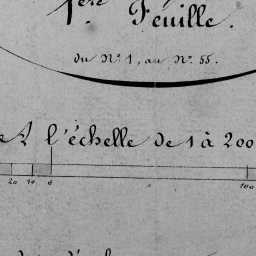 1ère Feuille.
du N.° 1, au N.° 55.
l'échelle de 1 à 200
20 10 0 100